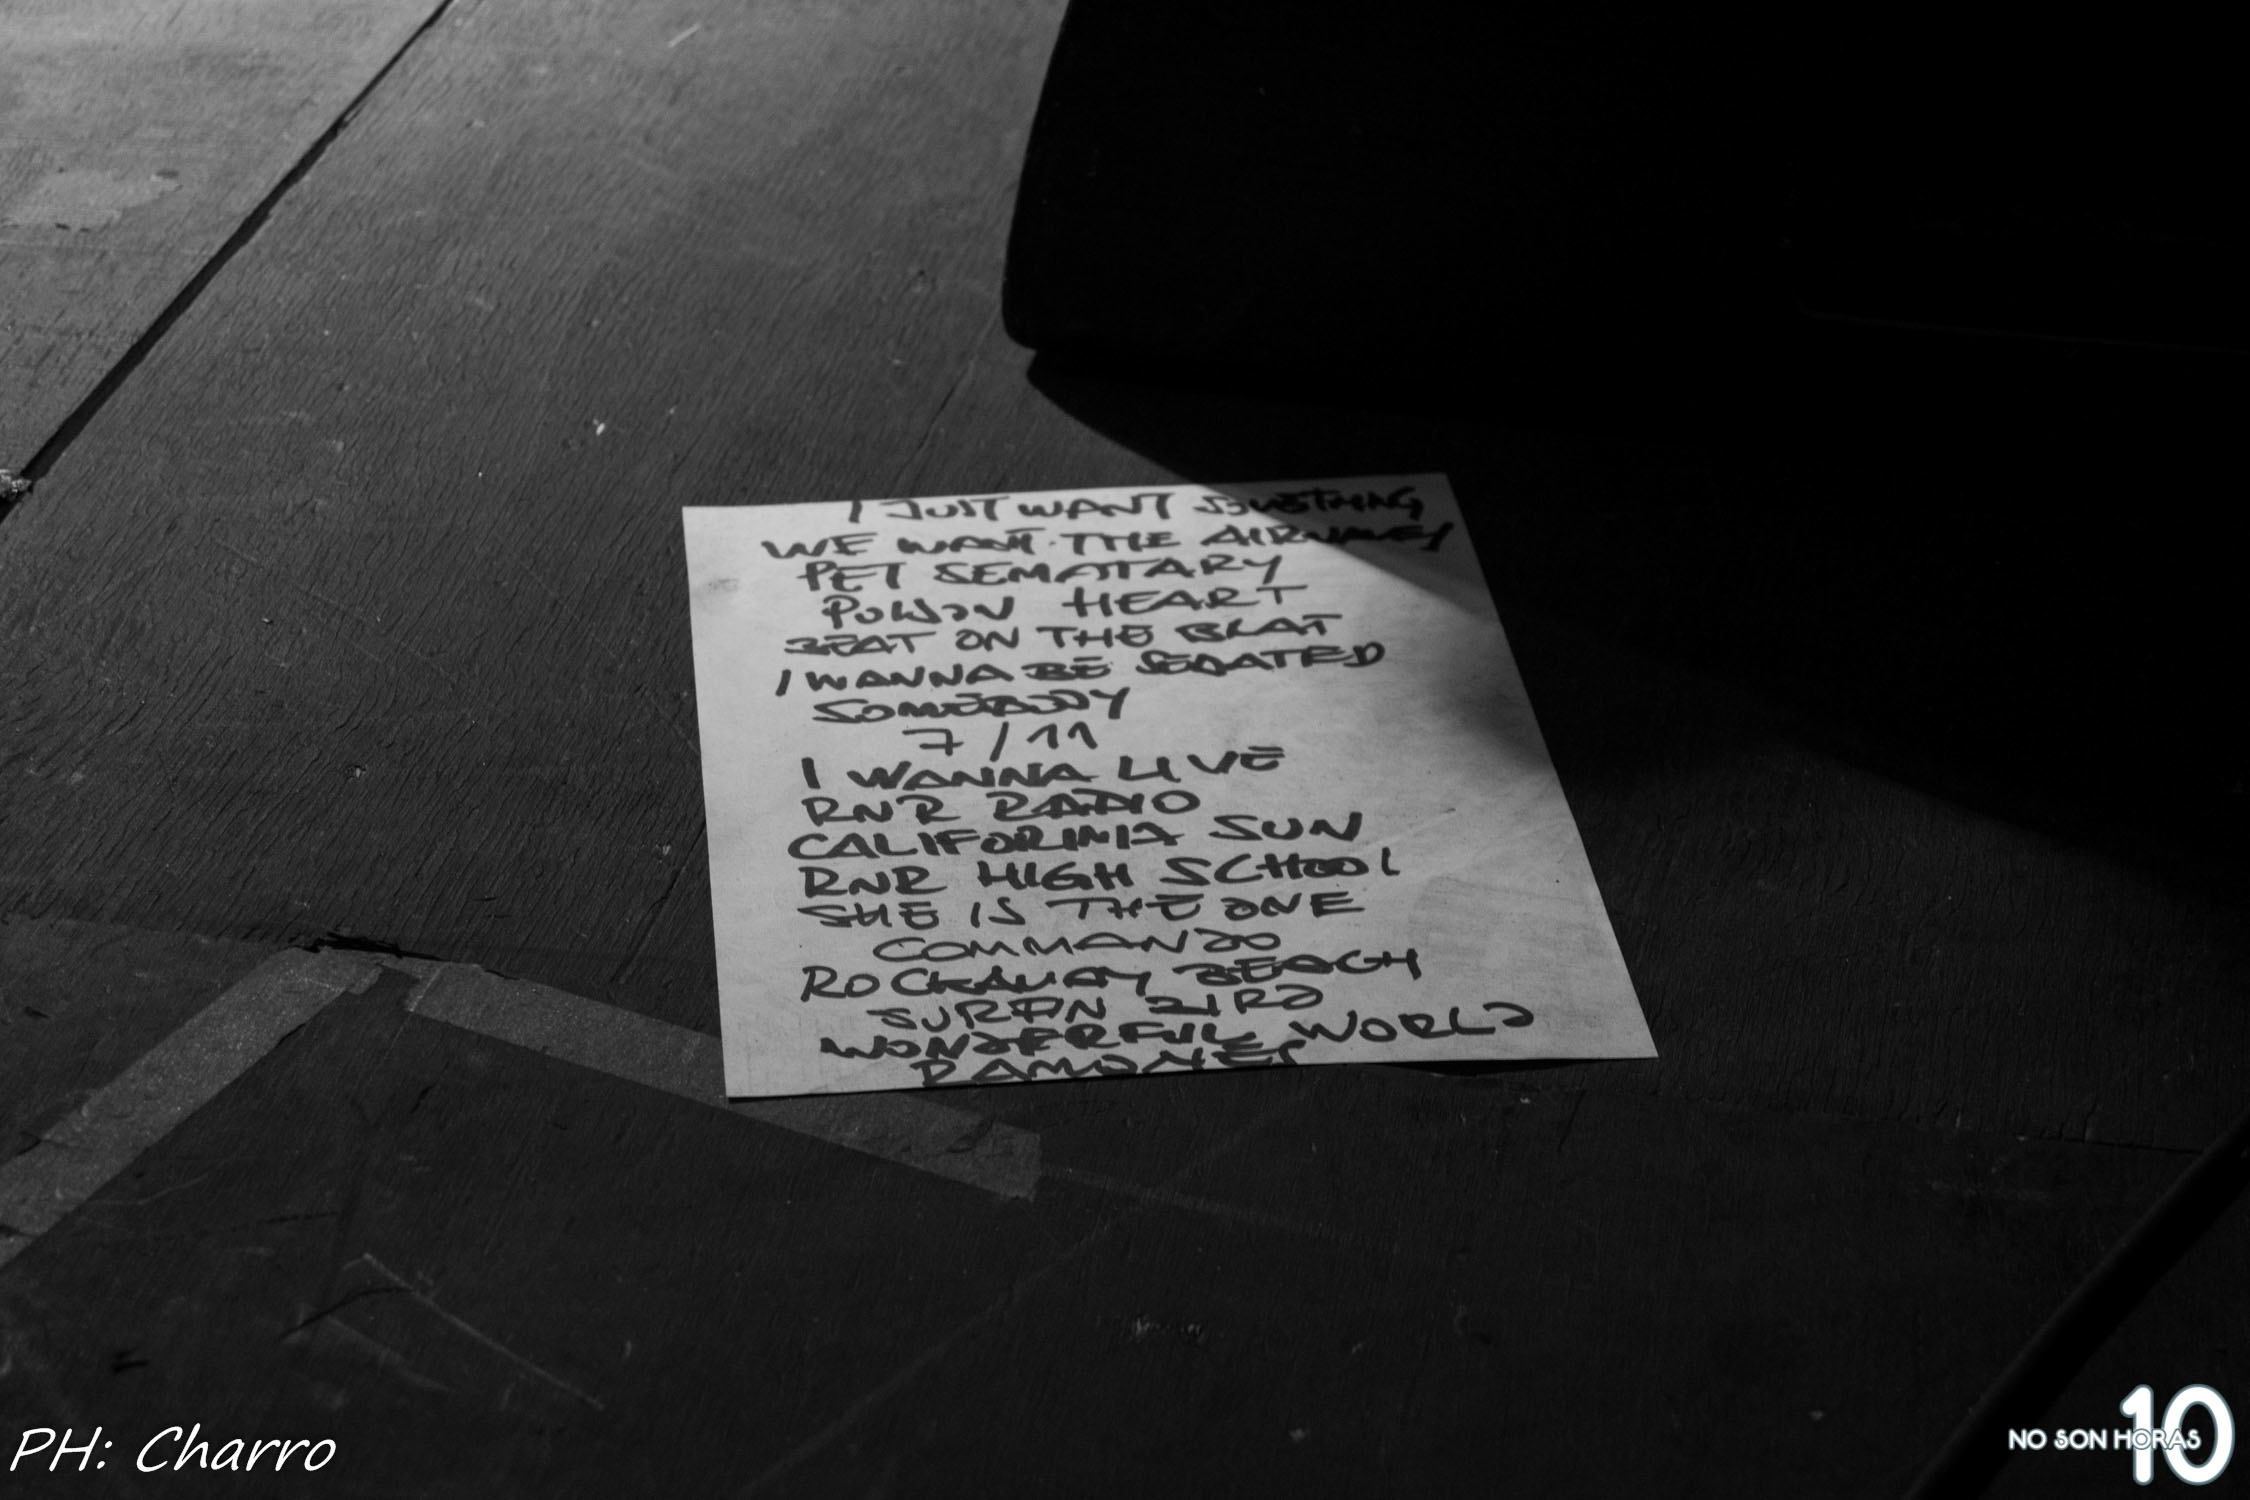 I JUST WANT SOMETHING
WE WANT THE AIRWAVES
PET SEMATARY
POISON HEART
BEAT ON THE BRAT
I WANNA BE SEDATED
SOMEBODY
7/11
I WANNA LIVE
RNR RADIO
CALIFORINIA SUN
RNR HIGH SCHOOL
SHE IS THE ONE
COMMANDO
ROCKAWAY BEACH
SURFIN BIRD
WONDERFUL WORLD
RAMONES
PH: Charro
NO SON HORAS 10